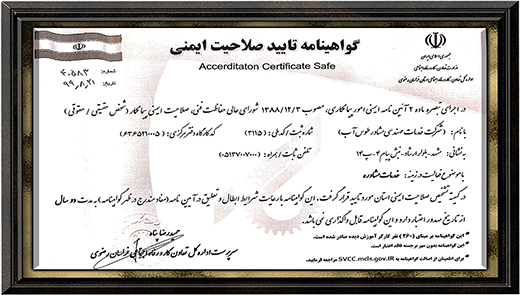 گواهینامه تایید صلاحیت ایمنی
Accerditaton Certificate Safe
جمهوری اسلامی ایران
وزارت تعاون، کار و رفاه اجتماعی
اداره کل تعاون، کار و رفاه اجتماعی استان خراسان رضوی
شماره: ۴۰۵۸۳
۹۹،۸،۲۱
در اجرای تبصره ماده ۲ آئین نامه ایمنی امور پیمانکاری، مصوب ۱۳۸۸/۱۲/۳ شورای عالی حفاظت فنی، صلاحیت ایمنی پیمانکار (شخص حقیقی / حقوقی)
با نام: (شرکت خدمات مهندسی مشاور طوس آب) شماره ثبت / کد ملی: (۳۱۱۵) کد کارگاه دفتر مرکزی: (۶۳۶۵۲۱۰۰۰۵)
به نشانی: مشهد - بلوار ارشاد - نبش پیام ۴ - پ ۱۴ تلفن ثابت / همراه: (۰۵۱۳۷۰۰۷۰۰۰)
با موضوع فعالیت در زمینه: خدمات مشاوره
در کمیته تشخیص صلاحیت ایمنی استان مورد تایید قرار گرفت. این گواهینامه با رعایت شرایط ابطال و تعلیق در آیین نامه (مفاد مندرج در ظهر گواهینامه) به مدت دو سال
از تاریخ صدور اعتبار دارد و این گواهینامه قابل واگذاری نمی باشد.
* این گواهینامه بر مبنای (۲۶۰) نفر کارگر آموزش دیده صادر شده است.
* این گواهینامه بدون مهر برجسته فاقد اعتبار است.
* برای اطمینان از اصالت گواهینامه به SVCC.mds.gov.IR مراجعه فرمایید.
حمیدرضا پناه
سرپرست اداره کل تعاون کار و رفاه اجتماعی خراسان رضوی